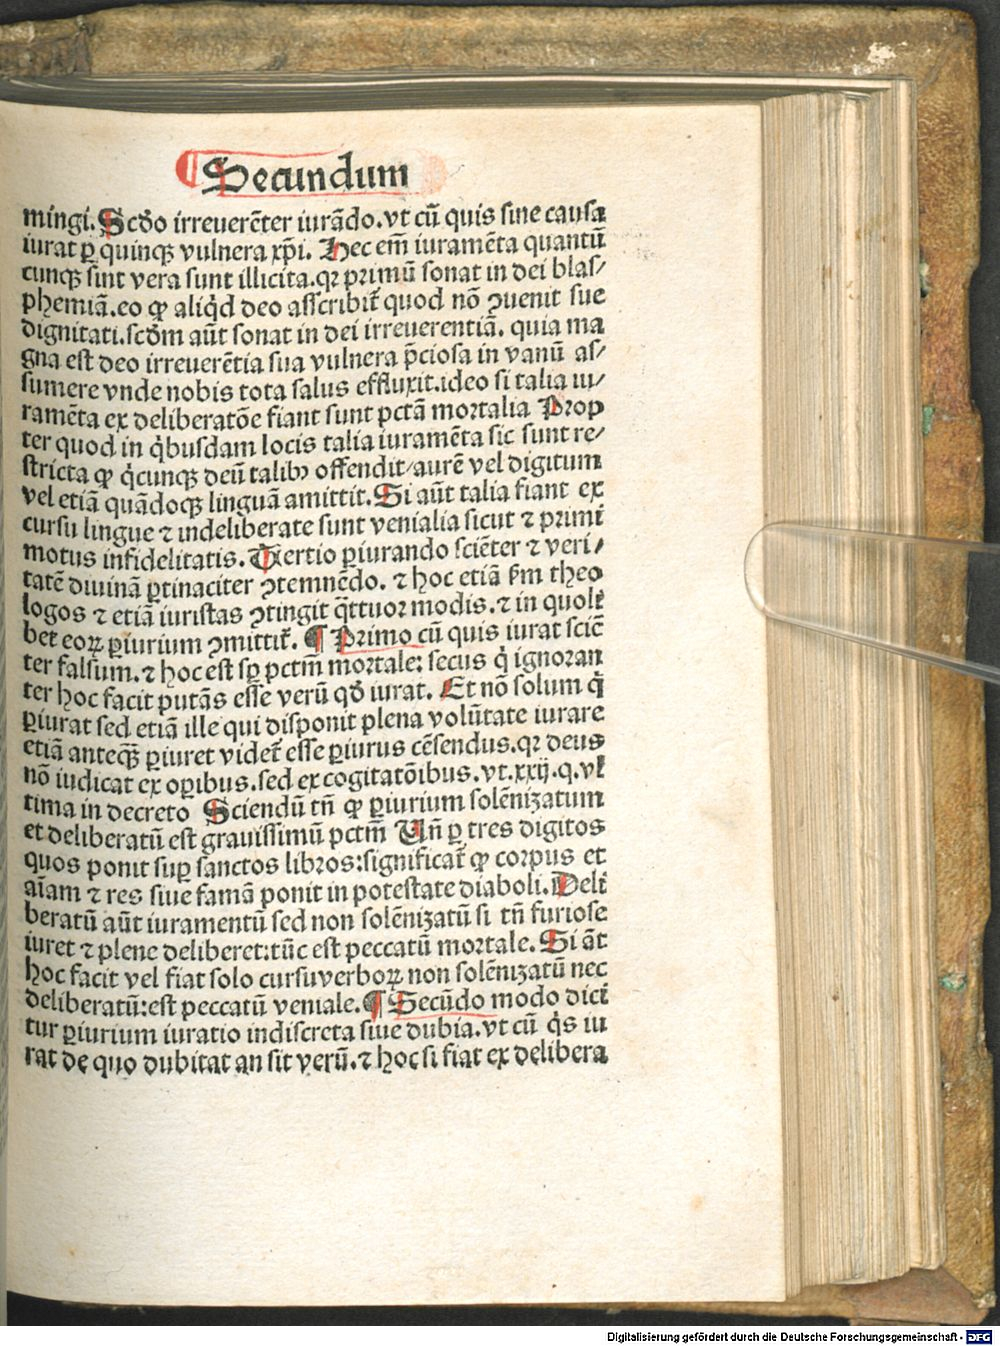 Secundum
mingi. Scd̄o irreuerēter iurādo. vt cū quis sine causa
iurat ꝑ quinqꝫ vulnera xp̄i. Hec em̄ iuramēta quantū
cunqꝫ sint vera sunt illicita. qꝛ primū sonat in dei blas/
phemiā. eo ꝙ aliqͥd deo asscribit᷑ quod nō ꝯuenit sue
dignitati. scd̄m aūt sonat in dei irreuerentiā. quia ma
gna est deo irreuerētia sua vulnera p̄ciosa in vanū as/
sumere vnde nobis tota salus effluxit. ideo si talia iu/
ramēta ex deliberatōe fiant sunt pctā mortalia Prop
ter quod in qͥbusdam locis talia iuramēta sic sunt re/
stricta ꝙ qͥcunqꝫ deū talibꝰ offendit/ aurē vel digitum
vel etiā quādoqꝫ linguā amittit. Si aūt talia fiant ex
cursu lingue ⁊ indeliberate sunt venialia sicut ⁊ primi
motus infidelitatis. Tertio ꝑiurando sciēter ⁊ veri/
tatē diuinā ꝑtinaciter ꝯtemnēdo. ⁊ hoc etiā fm theo
logos ⁊ etiā iuristas ꝯtingit qͣttuor modis. ⁊ in quolꝫ
bet eoꝝ ꝑiurium ꝯmittit᷑. ¶ Primo cū quis iurat sciē
ter falsum. ⁊ hoc est sꝑ pctm̄ mortale: secus qͥ ignoran
ter hoc facit putās esse verū qd̄ iurat. Et nō solum qͥ
ꝑiurat sed etiā ille qui disponit plena volūtate iurare
etiā anteqꝫ̄ ꝑiuret videt᷑ esse ꝑiurus cēsendus. qꝛ deus
nō iudicat ex oꝑibus. sed ex cogitatōibus. vt. xxij. q. vl
tima in decreto Sciendū tn̄ ꝙ ꝑiurium solēnizatum
et deliberatū est grauissimū pctm̄ Vn̄ ꝑ tres digitos
quos ponit suꝑ sanctos libros: significat᷑ ꝙ corpus et
aīam ⁊ res siue famā ponit in potestate diaboli. Deli
beratū aūt iuramentū sed non solēnizatū si tn̄ furiose
iuret ⁊ plene deliberet: tūc est peccatū mortale. Si āt
hoc facit vel fiat solo cursu verboꝝ non solēnizatū nec
deliberatū: est peccatū veniale. ¶ Secūdo modo dici
tur ꝑiurium iuratio indiscreta siue dubia. vt cū qͥs iu
rat de quo dubitat an sit verū. ⁊ hoc si fiat ex delibera
Digitalisierung gefördert durch die Deutsche Forschungsgemeinschaft - DFG